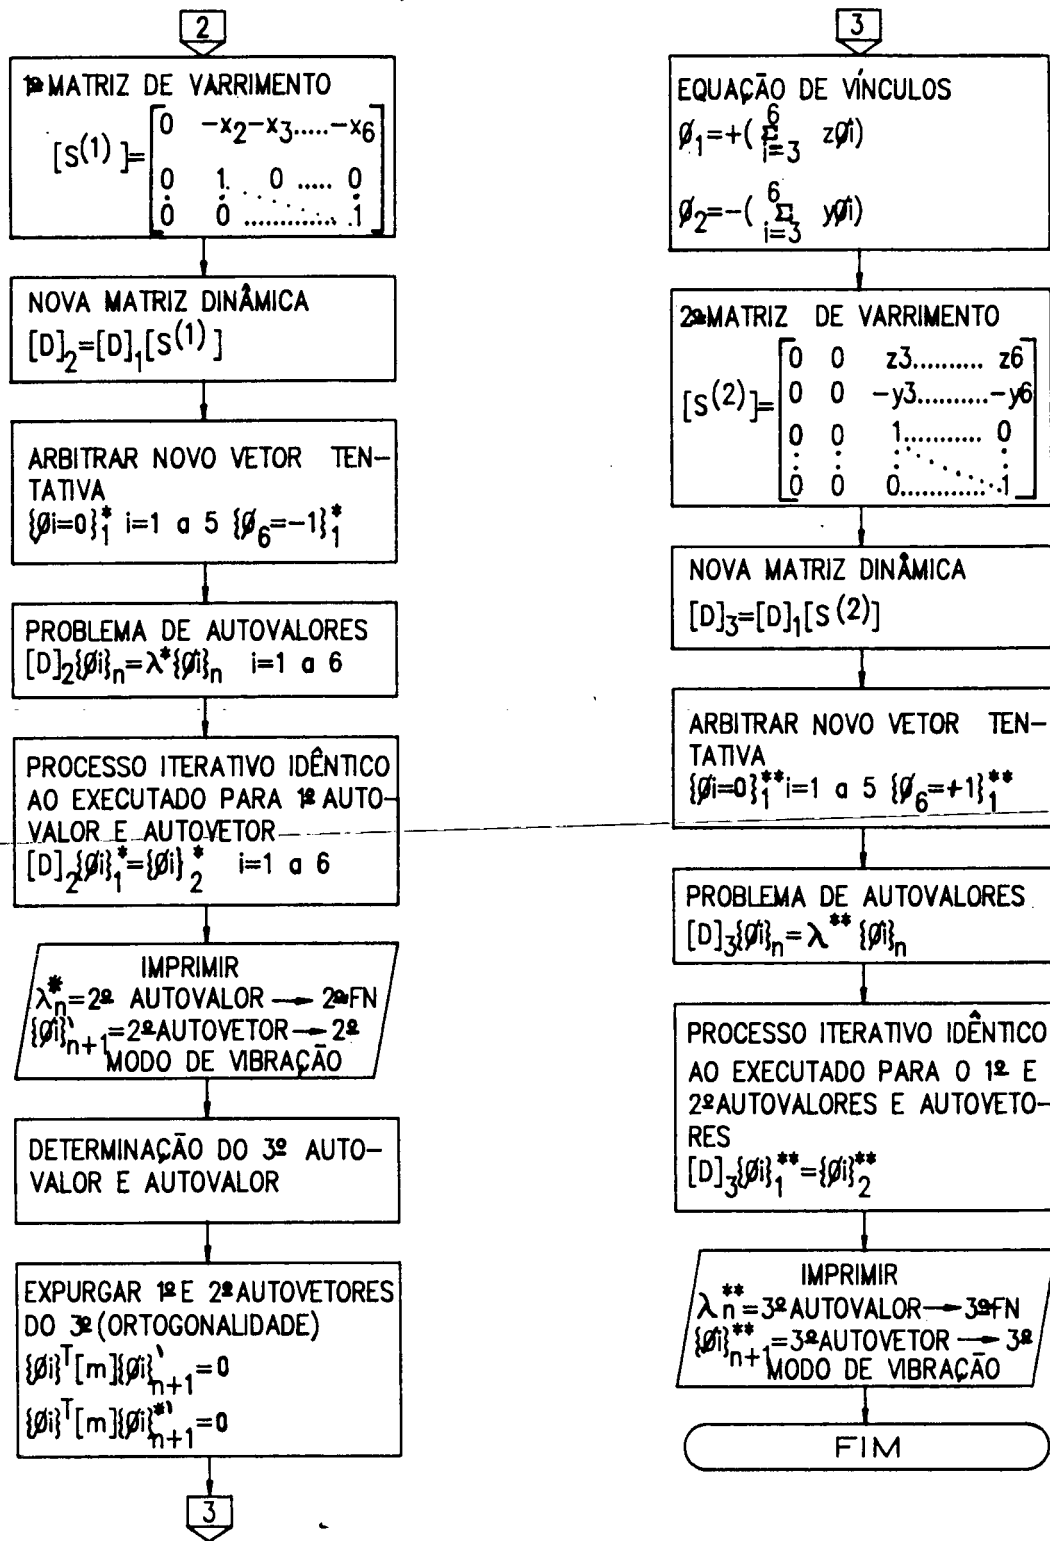 2
1ª MATRIZ DE VARRIMENTO
[S(1)]=[0 -x2-x3.....-x6
0 1. 0 ..... 0
0 0 ............ .1]
NOVA MATRIZ DINÂMICA
[D]2=[D]1[S(1)]
ARBITRAR NOVO VETOR TEN-
TATIVA
{Øi=0}*1 i=1 a 5 {Ø6=-1}*1
PROBLEMA DE AUTOVALORES
[D]2{Øi}n=λ*{Øi}n i=1 a 6
PROCESSO ITERATIVO IDÊNTICO
AO EXECUTADO PARA 1º AUTO-
VALOR E AUTOVETOR
[D]2{Øi}*1={Øi}*2 i=1 a 6
IMPRIMIR
λ*n=2º AUTOVALOR → 2ªFN
{Øi}'n+1=2º AUTOVETOR → 2º
MODO DE VIBRAÇÃO
DETERMINAÇÃO DO 3º AUTO-
VALOR E AUTOVALOR
EXPURGAR 1º E 2º AUTOVETORES
DO 3º (ORTOGONALIDADE)
{Øi}T[m]{Øi}'n+1=0
{Øi}T[m]{Øi}*'n+1=0
3
3
EQUAÇÃO DE VÍNCULOS
Ø1=+( 6 Σ i=3 zØi)
Ø2=-( 6 Σ i=3 yØi)
2ª MATRIZ DE VARRIMENTO
[S(2)]=[0 0 z3.......... z6
0 0 -y3..........-y6
0 0 1........... 0
0 0 0............1]
NOVA MATRIZ DINÂMICA
[D]3=[D]1[S(2)]
ARBITRAR NOVO VETOR TEN-
TATIVA
{Øi=0}**1 i=1 a 5 {Ø6=+1}**1
PROBLEMA DE AUTOVALORES
[D]3{Øi}n=λ**{Øi}n
PROCESSO ITERATIVO IDÊNTICO
AO EXECUTADO PARA O 1º E
2º AUTOVALORES E AUTOVETO-
RES
[D]3{Øi}**1={Øi}**2
IMPRIMIR
λ**n=3º AUTOVALOR → 3ªFN
{Øi}**n+1=3º AUTOVETOR → 3º
MODO DE VIBRAÇÃO
FIM